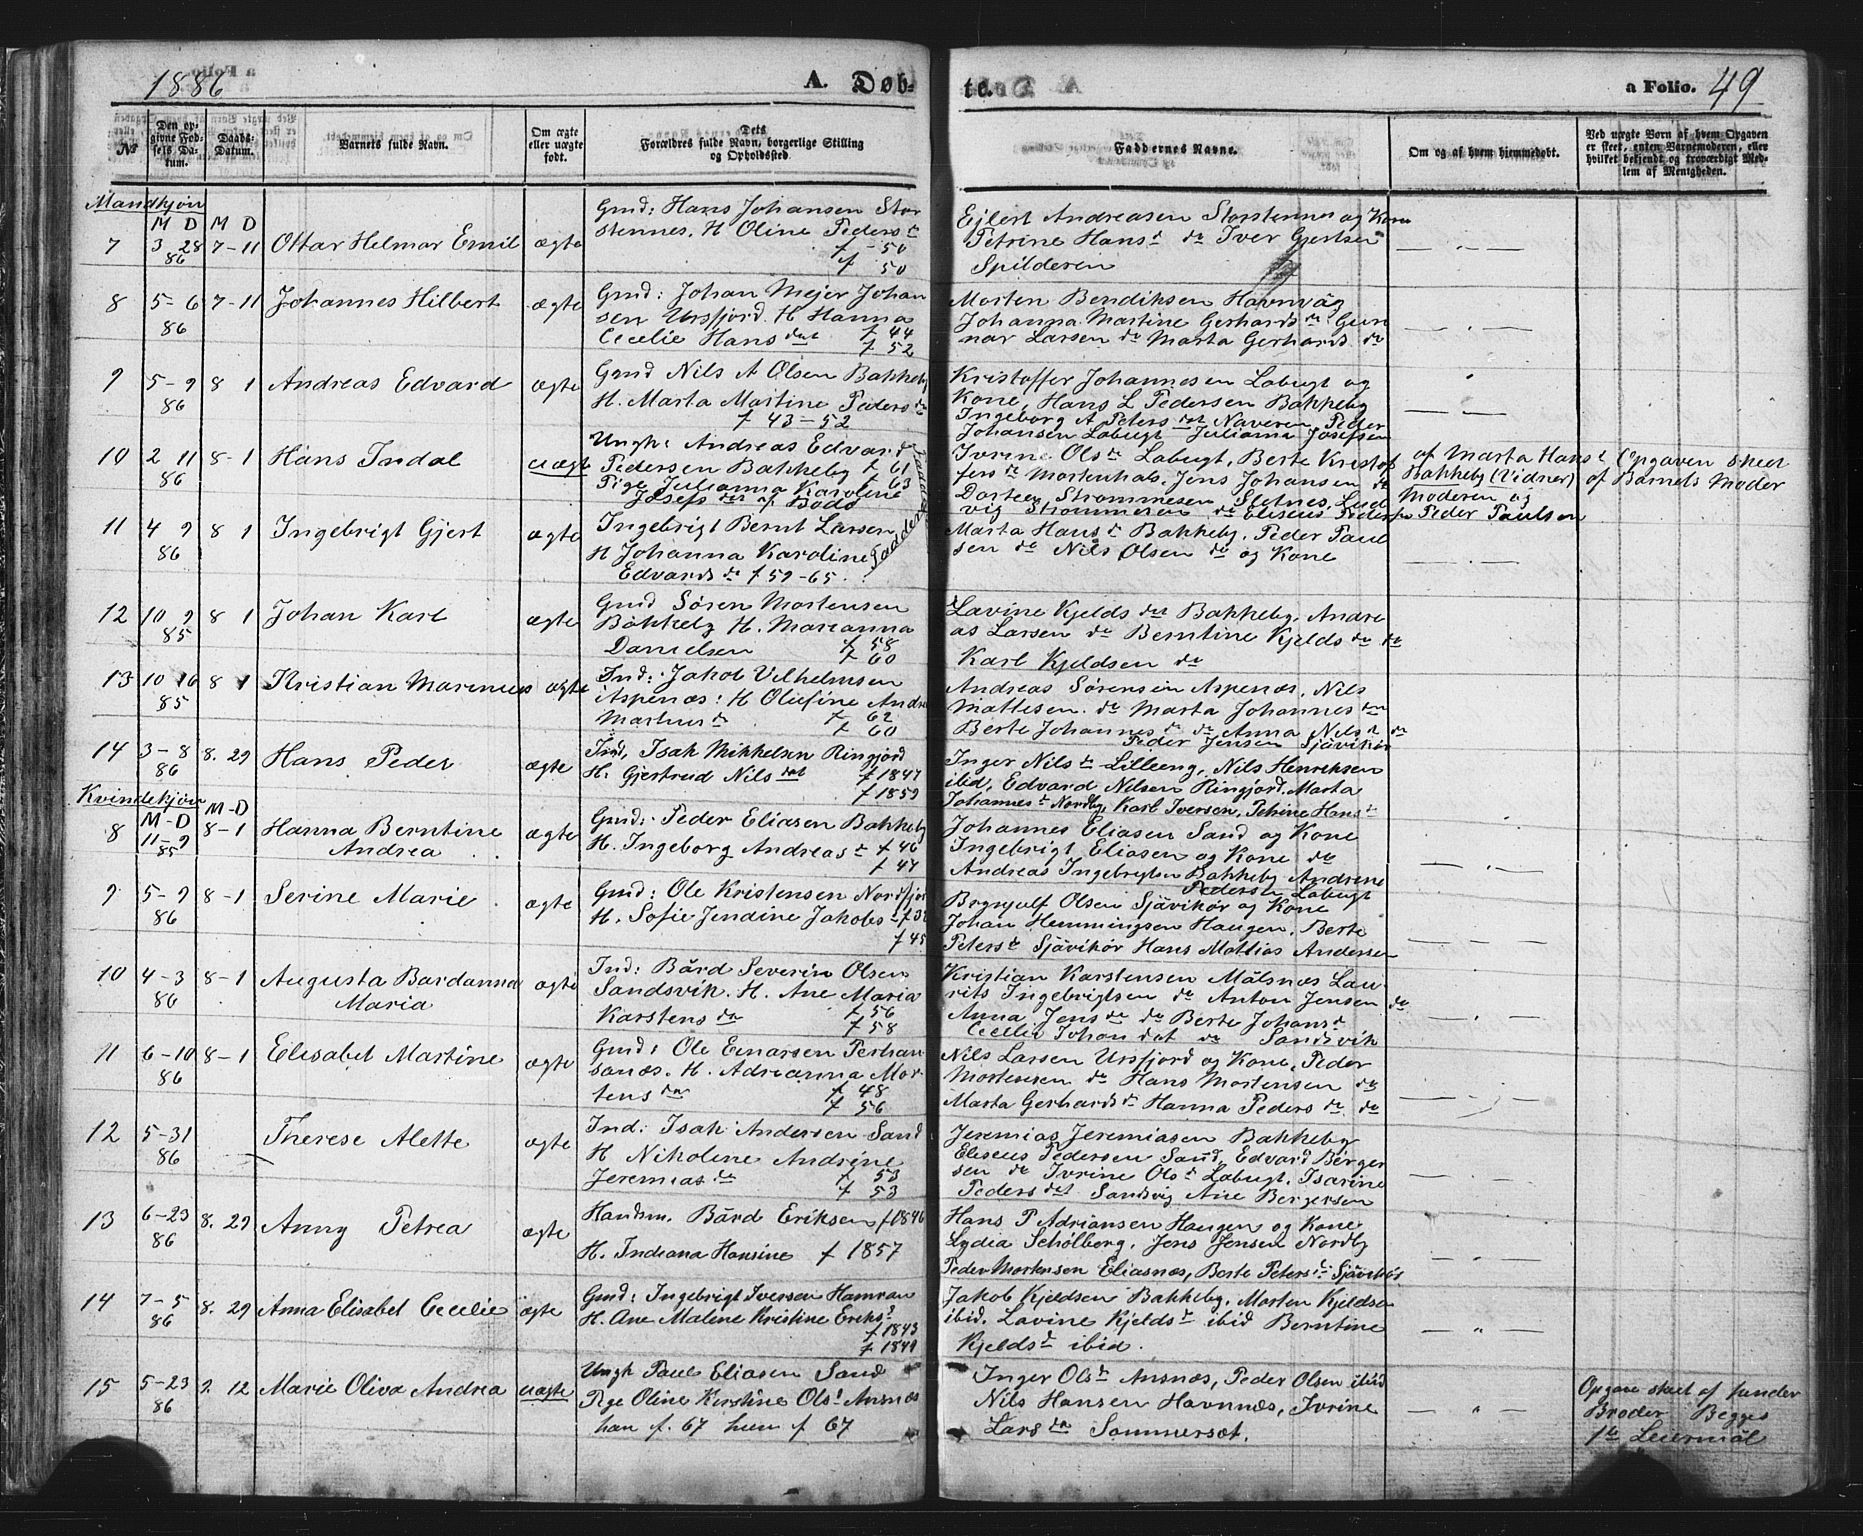 1886
A. Døb-
te.
a Folio. 49
No
Den op-
givne Fød-
sels Da-
tum.
Daabs-
Datum.
Barnets fulde Navn.
Om ægte
eller uægte
født.
Dets
Forældres fulde Navn, borgerlige Stilling
og Opholdssted.
Faddernes Navne.
Om og af hvem hjemmedøbt.
Ved uægte Børn af hvem Opgaven
er skeet, enten Barnemoderen, eller
hvilket bekjendt og troværdigt Med-
lem af Menigheden.
Mandkjøn
M D M D
7 3 28 86 7-11 Ottar Helmar Emil ægte
Gmd: Hans Johansen Stor
stennes. H Oline Peders d
f - 56
f 50
Ejlert Andreasen Storstennes og Kone
Petrine Hans d do Iver Gjertsen
Spilderen
8 5-6 86 7-11 Johannes Hilbert ægte
Gmd: Johan Mejer Johan
sen Ursfjord. H Hanna
Cecelie Hans dat f 44
f 52
Morten Bendiksen Havnvåg
Johanna Martine Gerhards da Gun
nar Larsen do Marta Gerhards do
9 5-9 86 8 1 Andreas Edvard ægte
Gmd Nils A Olsen Bakkeby
H. Marta Martine Peders da
f 43-52
Kristoffer Johannesen Labugt og
Kone, Hans L Pedersen Bakkeby
Ingeborg A Peters dat Naveren Peder
Johansen Labugt Julianna Josefsen
10 2 11 86 8-1 Hans Indal uægt
Ungk: Andreas Edvard
Pedersen Bakkeby f 61
Pige Julianna Karoline f 63
Josefs dat af Bodø
Faddere
Ivrine Ols d Labugt, Berte Kristof
fers d Mortenhals, Jens Johansen do
Dorteg Strømmesen Sletnes, Lud
vig Strømmesen do Eliseus Peders
af Marta Hans d
Bakkeby (Vidner)
Moderen og
Peder Paulsen
Opgaven skeet
af Barnets Moder
11 4 9 86 8 1 Ingebrigt Gjert ægte
Ingebrigt Bernt Larsen
H Johanna Karoline
Edvards da f 59-65.
Faddere
Marta Hans d Bakkeby, Peder Paul
sen do Nils Olsen do og Kone
12 10 9 85 8 1 Johan Karl ægte
Gmd Søren Mortensen
Bakkeby H. Marianna
Danielsen f 58
f 60
Lavine Kjelds dat Bakkeby, Andre
as Larsen do Berntine Kjelds da do
Karl Kjeldsen do
13 10 16 85 8 1 Kristian Marenius ægte
Ind: Jakob Vilhelmsen
Aspenæs: H Olufine Andr
Marthus d f 62
f 60
Andreas Sørensen Aspenæs, Nils
Mattisen do Marta Johannes dn
Berte Johannes d do Anna Nils d do
Peder Jensen Sjåvikør
14 3-8 86 8. 29 Hans Peder ægte
Ind, Isak Mikkelsen Ringjord
H. Gjertrud Nils dat f 1847
f 1859
Inger Nils d Lilleeng, Nils Henriksen
ibid, Edvard Nilsen Ringjord, Marta
Johannes d Nordby, Karl Iversen, Petrine Hans d
Kvindekjøn
M-D M-D
8 11-9 85 8-1 Hanna Berntine
Andrea ægte
Gmd: Peder Eliasen Bakkeby
H. Ingeborg Andreas d f 46
f 47
Johannes Eliasen Sand og Kone
Ingebrigt Eliasen og Kone do
Andreas Ingebrigtsen Bakkeby Andrene
Pedersen Labugt
9 5-9 86 8-1 Serine Marie ægte
Gmd: Ole Kristensen Nordfjor
H. Sofie Jendine Jakobs d f 38
f 45
Brynjulf Olsen Sjåvikør og Kone
Johan Hemmingsen Haugen, Berte
Peters d Sjåvikør Hans Mathias Andersen
10 4-3 86 8-1 Augusta Bardanna
Maria ægte
Ind: Bård Severin Olsen
Sandsvik. H. Ane Maria
Karstens da f 56
f 58
Kristian Karstensen Målsnes Lau
rits Ingebrigtsen do Anton Jensen do
Anna Jens da do Berte Johans d
Cecelie Johan dat do Sandsvik
11 6-10 86 8-1 Elisabet Martine ægte
Gmd: Ole Einarsen Peshau
sanæs. H. Adrianna Mor
tens da f 48
f 56
Nils Larsen Ursfjord og Kone, Peder
Mortensen do Hans Mortensen do
Marta Gerhards d Hanna Peders da do
12 5-31 86 Therese Alette ægte
Ind: Isak Andersen Sand
H Nikoline Andrine
Jeremias da f 53
f 53
Jeremias Jeremiasen Bakkeby
Eliseus Pedersen Sand, Edvard Berger
sen do Ivrine Ols d Labugt, Isarine
Peders dat Sandsvig Ane Bergersen
13 6-23 86 8. 29 Anny Petrea ægte
Handsm. Bård Eriksen f 1846
H. Indiana Hansine f 1857
Hans P Adriansen Haugen og Kone
Lydia Schølberg, Jens Jensen Nordby
Peder Mortensen Eliasnæs, Berte Peters d Sjåvikør
14 7-5 86 8. 29 Anna Elisabet Cecelie ægte
Gmd: Ingebrigt Iversen Hamran
H. Ane Malene Kristine Eriks d
f 1843
f 1849
Jakob Kjeldsen Bakkeby, Morten Kjeldsen
ibid. Lavine Kjelds d ibid Berntine
Kjelds d ibid.
15 5-23 86 9. 12 Marie Oliva Andrea uægte
Ungk Paul Eliasen Sand
Pige Oline Kirstine Ols d Ansnæs
han f. 67 hun f 67
Inger Ols d Ansnæs, Peder Olsen ibid
Nils Hansen Havnnæs, Ivrine
Lars da Sommersæt.
Opgave skeet af hendes
Broder Begges
1te Leiermål